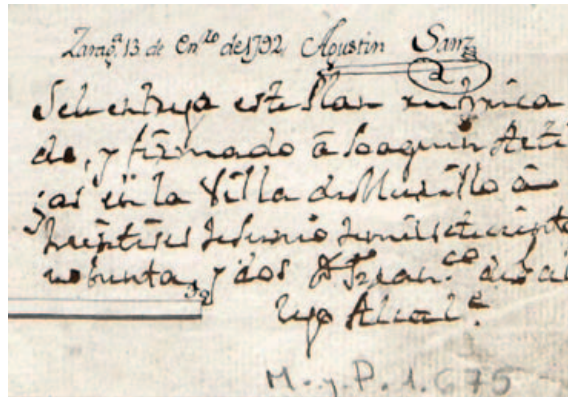 Zarag.ª 13 de En.ro de 1792, Agustin Sanz
Se le entrega este Plan rubrica
do, y firmado â Joaquin Arti
gas en la Villa de Murillo â
veintiseis de Junio de mil setecientos
nobenta, y dos D.n Fran.co
Alcal.e
M. y P. 1.675